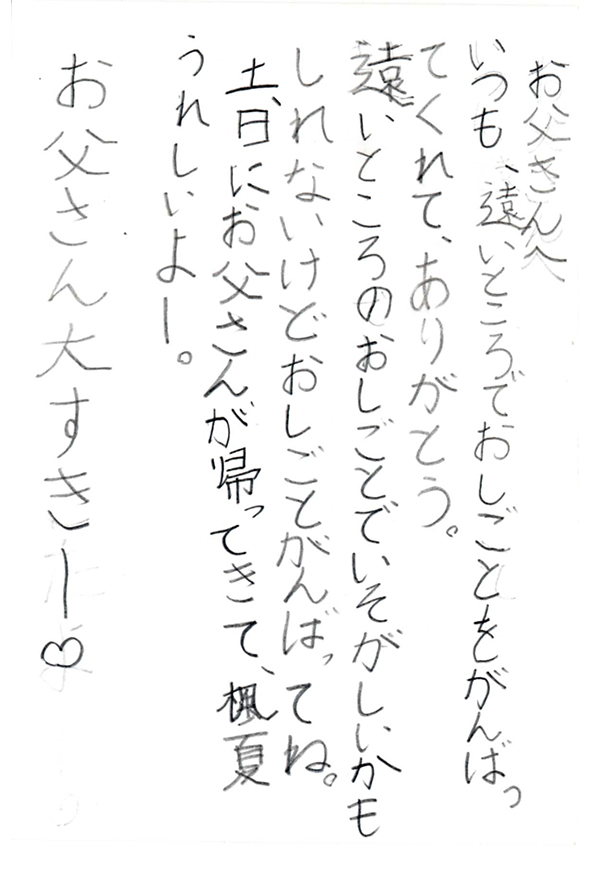 お父さんへ
いつも、遠いところでおしごとをがんばっ
てくれて、ありがとう。
遠いところのおしごとでいそがしいかも
しれないけどおしごとがんばってね。
土、日にお父さんが帰ってきて、楓夏
うれしいよー。
お父さん大すきー♡